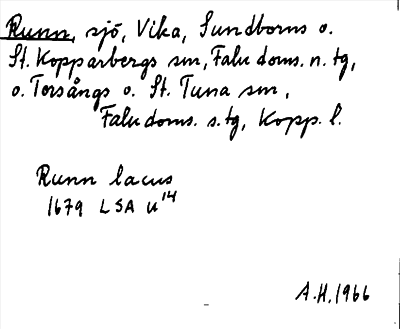 Runn, sjö, Vika, Sundborns o.
St. Kopparbergs sm, Falu doms. n. tg,
o. Torsångs o. St. Tuna sm,
Falu doms. s. tg, Kopp. l.
Runn lacus
1679 LSA U14
A.H. 1966